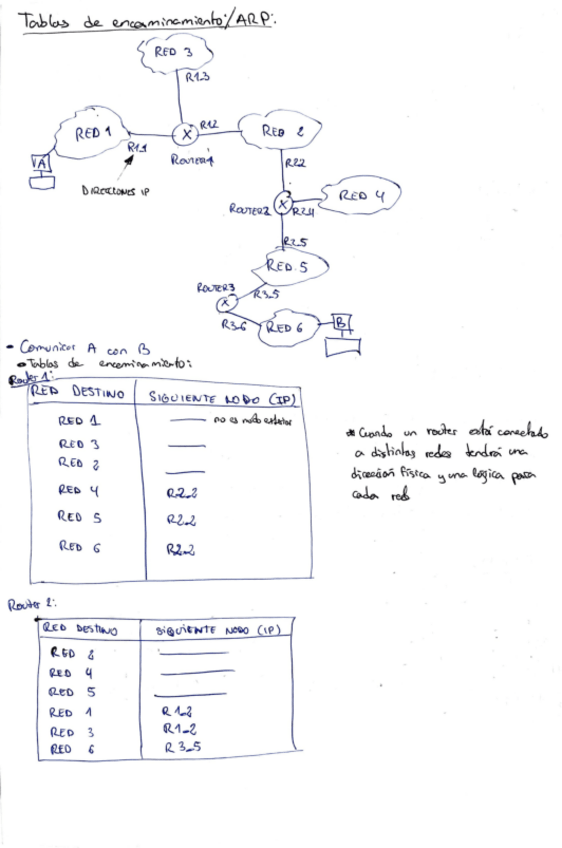 Tablas de encaminamiento/ARP:
RED 3
R1_3
RED 1
R1_1
R1_2
RED 2
ROUTER1
A
DIRECCIONES IP
R2_2
RED 4
ROUTER2
R2_4
R2_5
RED 5
ROUTER3
R3_5
R3_6
RED 6
B
- Comunicar A con B
• Tablas de encaminamiento:
Router 1:
RED DESTINO SIGUIENTE NODO (IP)
RED 1 —— no es nodo exterior
RED 3 ——
RED 2 ——
RED 4 R2_2
RED 5 R2_2
RED 6 R2_2
* Cuando un router está conectado
a distintas redes tendrá una
dirección física y una lógica para
cada red
Router 2:
RED DESTINO SIGUIENTE NODO (IP)
RED 2 ——
RED 4 ——
RED 5 ——
RED 1 R1_2
RED 3 R1_2
RED 6 R3_5